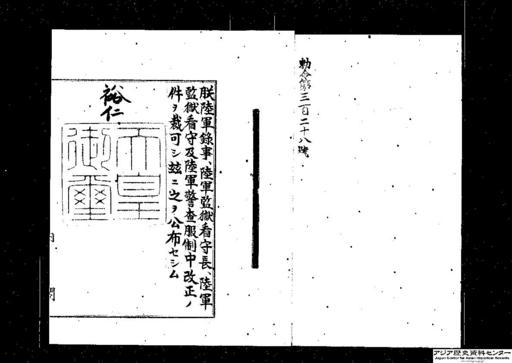 勅令第三百二十八號
朕陸軍錄事、陸軍監獄看守長、陸軍
監獄看守及陸軍警査服制中改正ノ
件ヲ裁可シ玆ニ之ヲ公布セシム
裕仁
天皇御璽
内閣
アジア歴史資料センター
Japan Center for Asian Historical Records